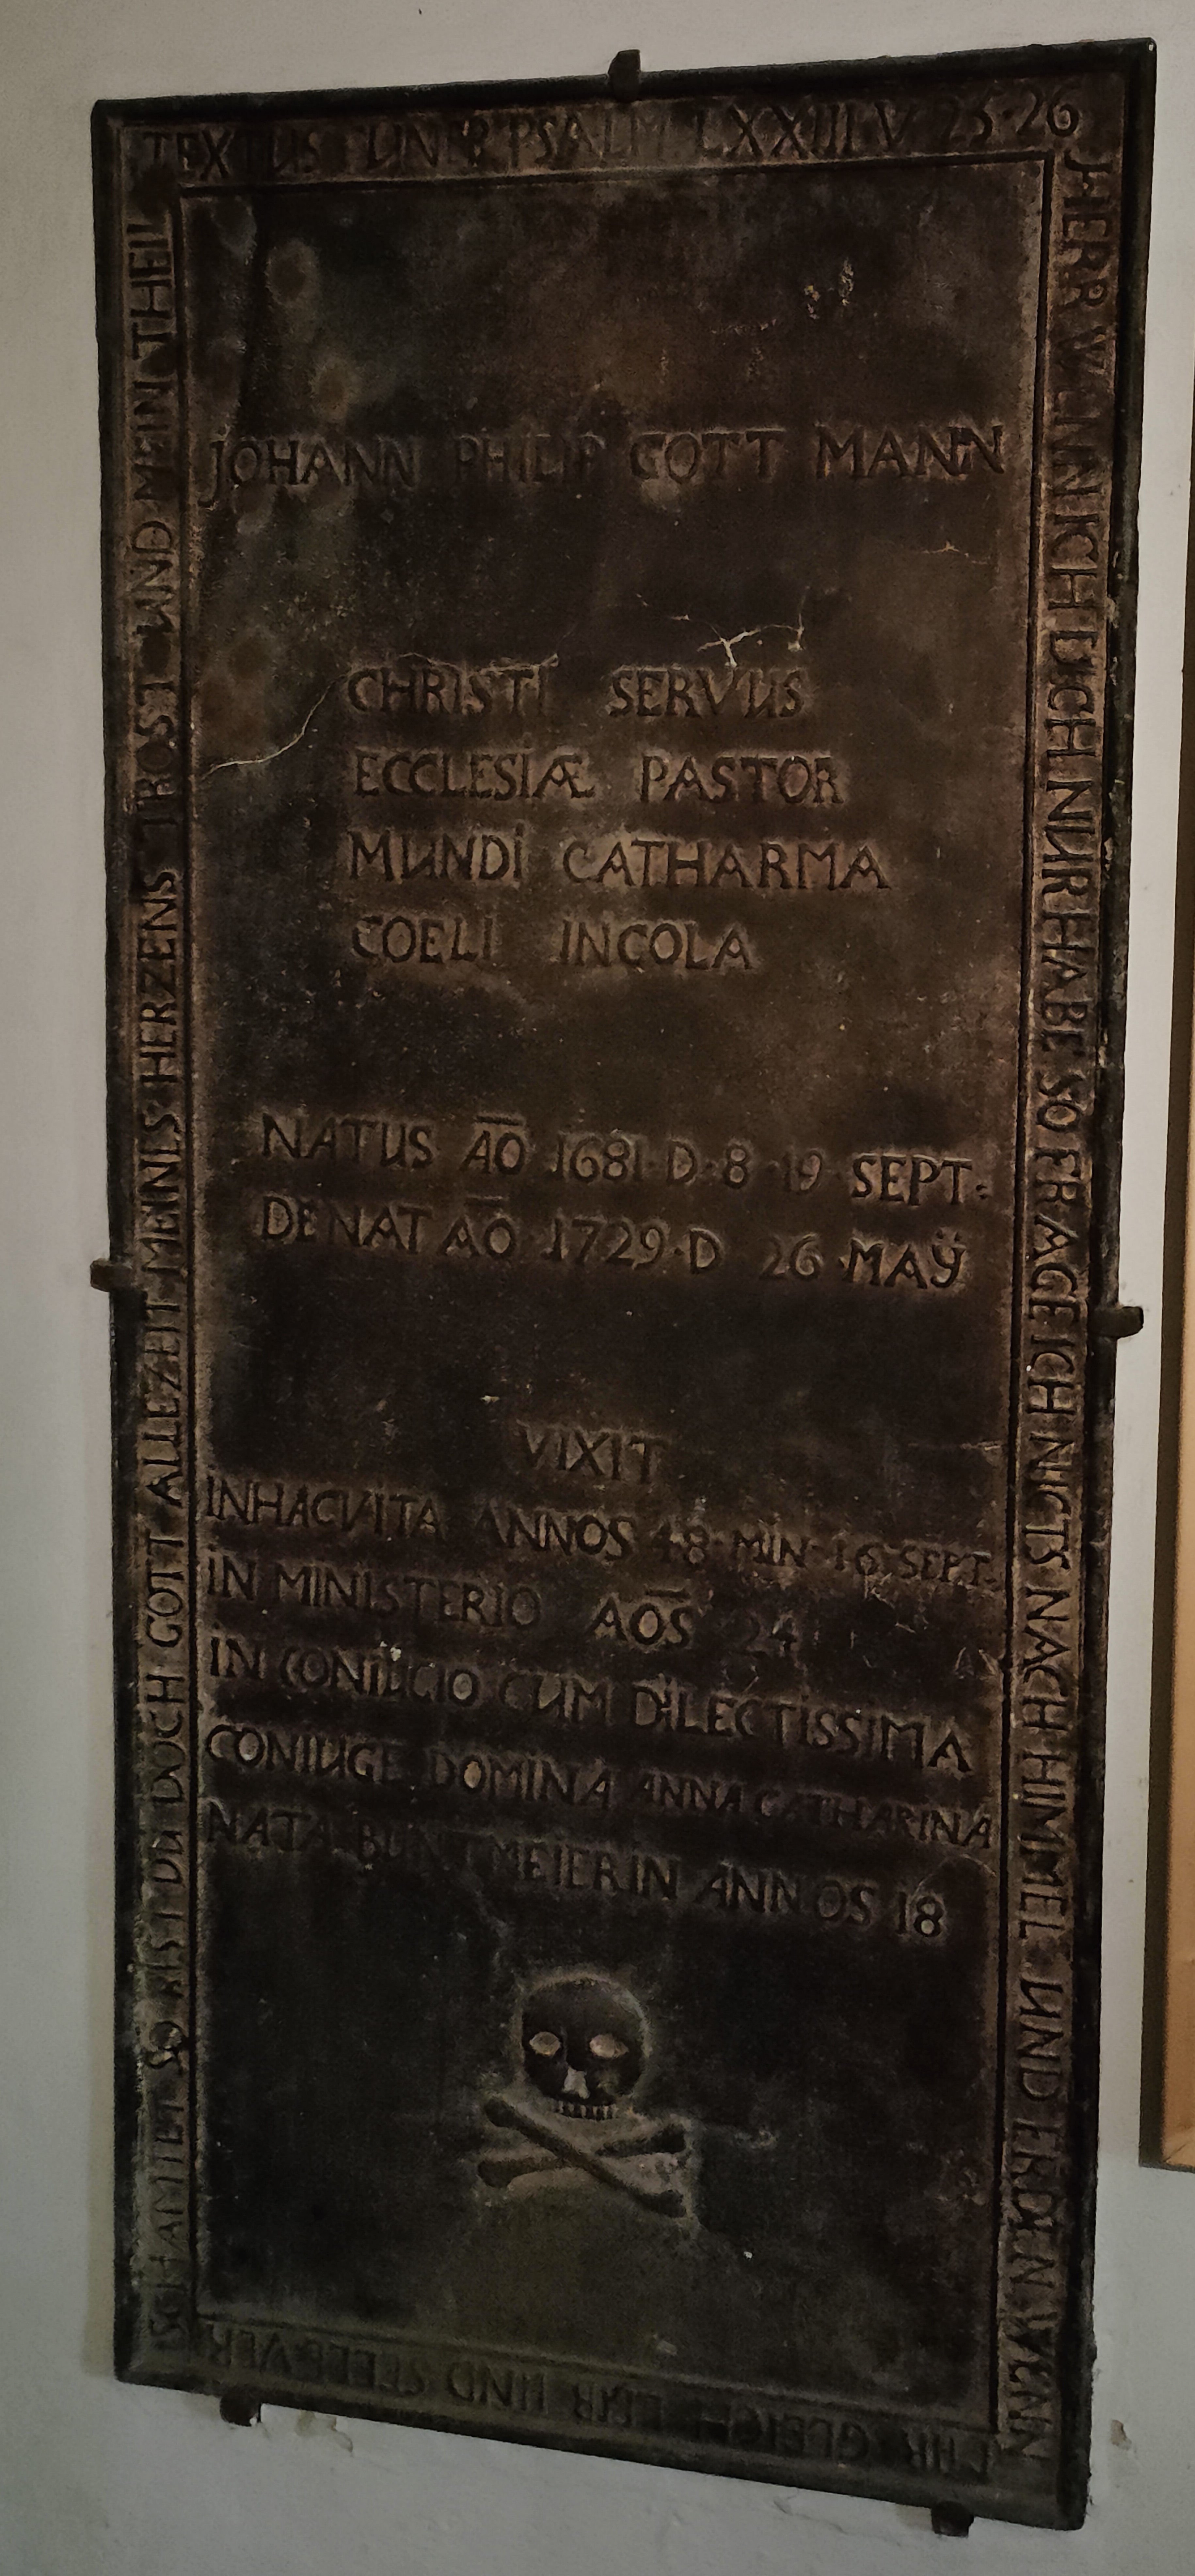 TEXTUS FUNEB PSALM LXXIII V. 25·26
HERR WENN ICH DICH NUR HABE SO FRAGE ICH NICTS NACH HIMMEL UND ERDEN WENN
GLEICH LEIB UND SEELE VER
SCHAMTET SO BIST DU DOCH GOTT ALLEZEIT MEINES HERZENS TROST UND MEIN THEIL
JOHANN PHILIP GOTT MANN
CHRISTI SERVUS
ECCLESIÆ PASTOR
MUNDI CATHARMA
COELI INCOLA
NATUS AO 1681 D·8·19 SEPT:
DENAT AO 1729·D 26 MAÿ
VIXIT
INHACVITA ANNOS 48 MIN 16 SEPT.
IN MINISTERIO AOS 24
IN CONIUGIO CUM DILECTISSIMA
CONIUGE DOMINA ANNA CATHARINA
NATA BUNTMEIERIN ANNOS 18